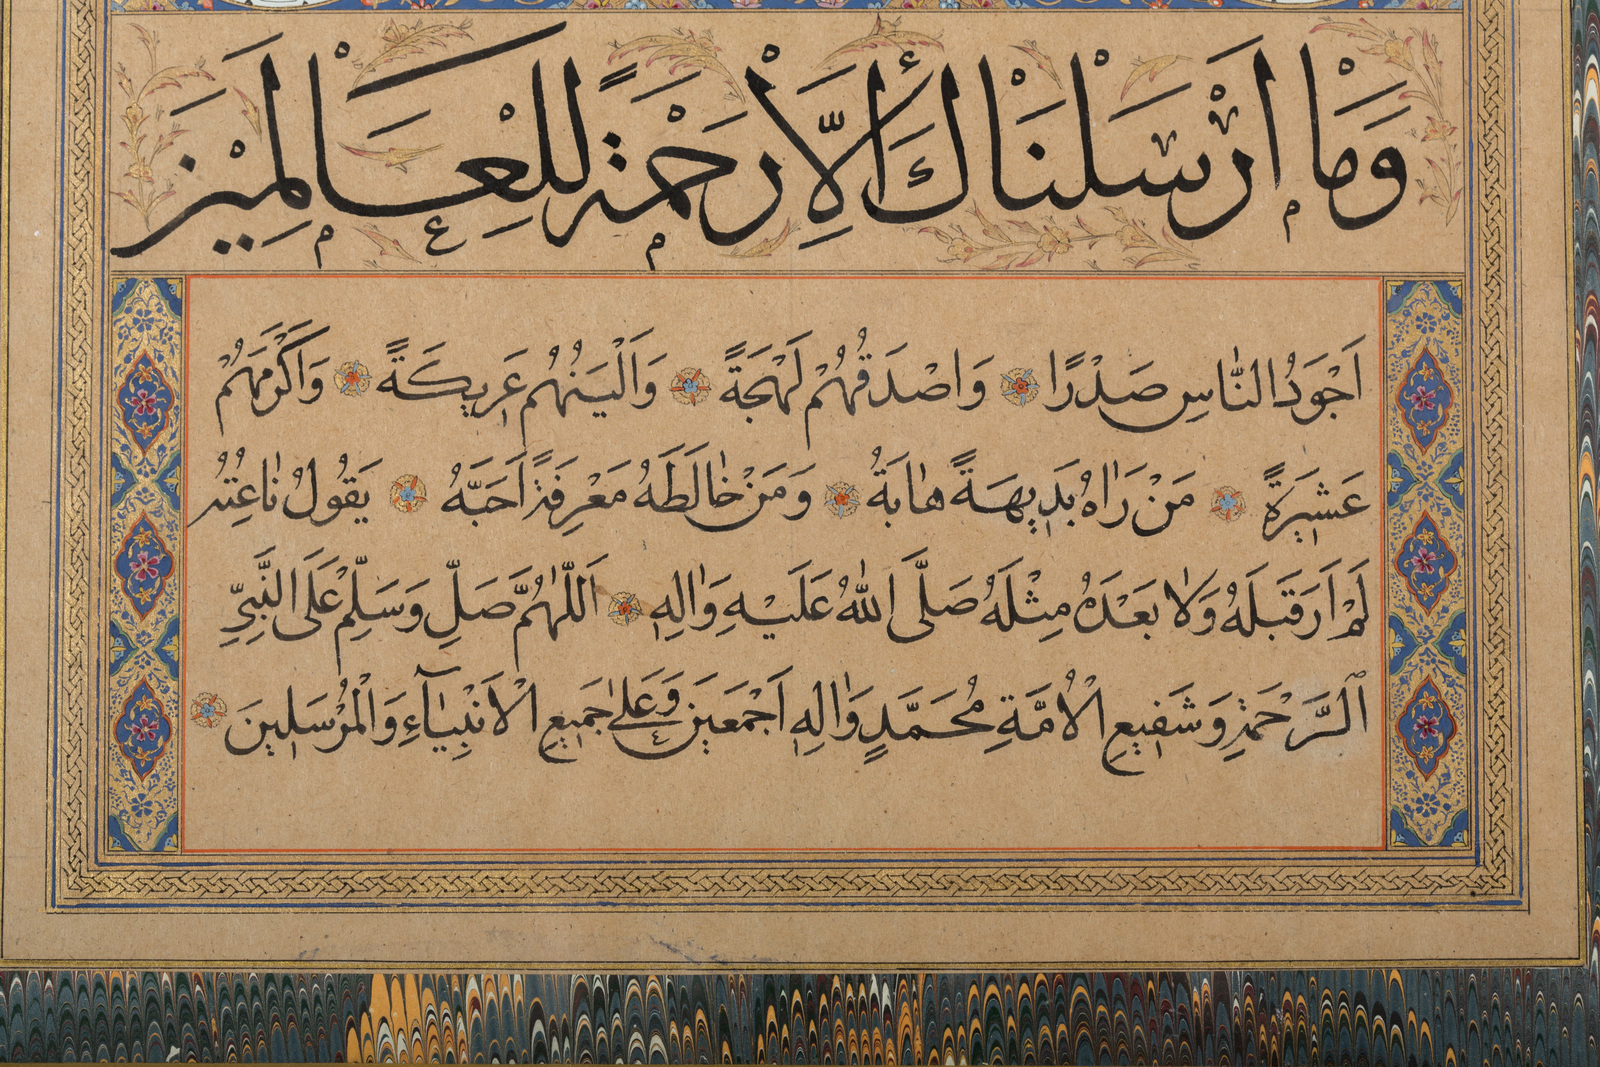 وَمَا اَرْسَلْنَاكَ اِلَّا رَحْمَةً لِلْعَالَمِينَ
اَجْوَدُ النَّاسِ صَدْرًا وَاَصْدَقُهُمْ لَهْجَةً وَاَلْيَنُهُمْ عَرِيكَةً وَاَكْرَمُهُمْ
عَشِيرَةً مَنْ رَاٰهُ بَدِيهَةً هٰابَهُ وَمَنْ خٰالَطَهُ مَعْرِفَةً اَحَبَّهُ يَقُولُ نٰاعِتُهُ
لَمْ اَرَ قَبْلَهُ وَلٰا بَعْدَهُ مِثْلَهُ صَلَّى اللّٰهُ عَلَيْهِ وَاٰلِهِ اَللّٰهُمَّ صَلِّ وَسَلِّمْ عَلَى النَّبِيِّ
الرَّحْمَةِ وَشَفِيعِ الْاُمَّةِ مُحَمَّدٍ وَاٰلِهِ اَجْمَعِينَ وَعَلٰى جَمِيعِ الْاَنْبِيَآءِ وَالْمُرْسَلِينَ